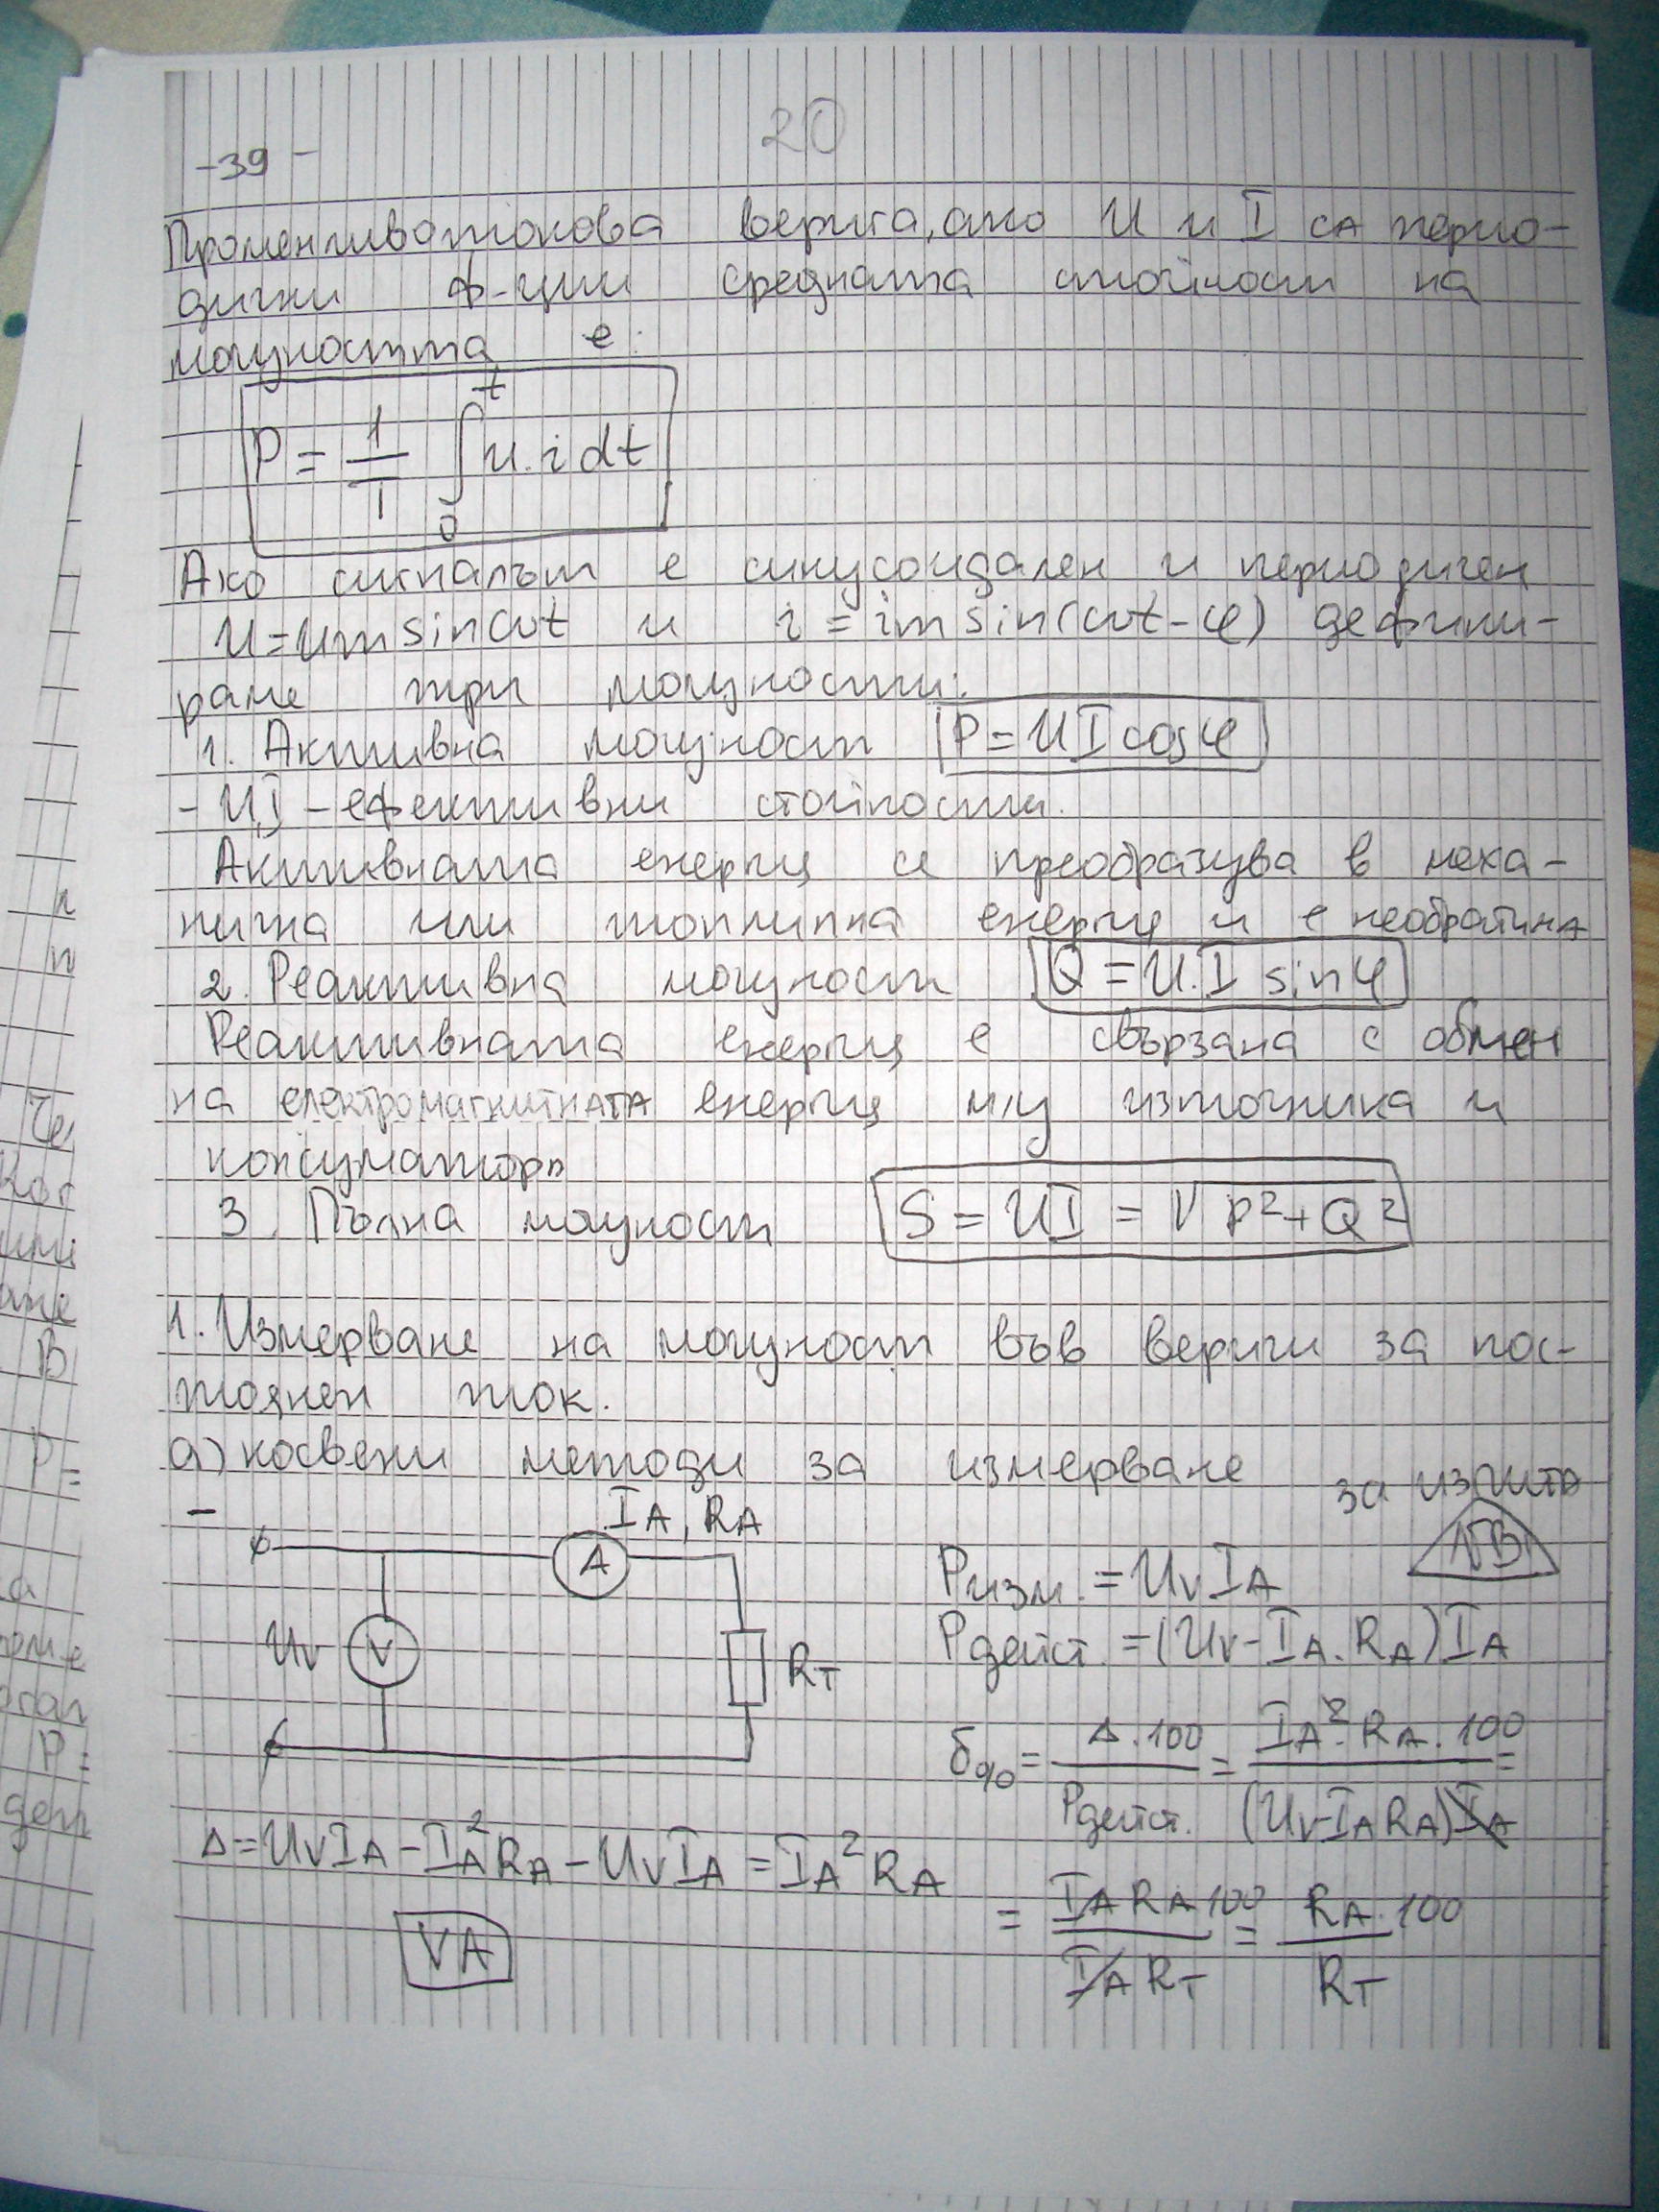 20
-39-
Променливотокова верига, ако U и I са перио-
дични ф-ции средната стойност на
мощността е:
P = 1/T ∫₀ᵗ u.i dt
Ако сигналът е синусоидален и периодичен
U=Um sinωt и i = im sin(ωt-φ) дефини-
раме три мощности:
1. Активна мощност P=UI cosφ
- U,I - ефективни стойности.
Активната енергия се преобразува в меха-
нична или топлинна енергия и е необратима
2. Реактивна мощност Q = U.I sinφ
Реактивната енергия е свързана с обмен
на електромагнитната енергия м/у източника и
консуматора
3. Пълна мощност S = UI = √P²+Q²
1. Измерване на мощност във вериги за пос-
тоянен ток.
а) косвени методи за измерване
за изпита
NB!
-
IA, RA
A
Uv V
RT
Pизм. = UvIA
Pдейст. = (Uv-IA.RA)IA
δ% = Δ.100 / Pдейст. = IA².RA.100 / (Uv-IARA)IA =
Δ=UvIA-IA²RA-UvIA=IA²RA
= IARA100 / IART = RA.100 / RT
VA